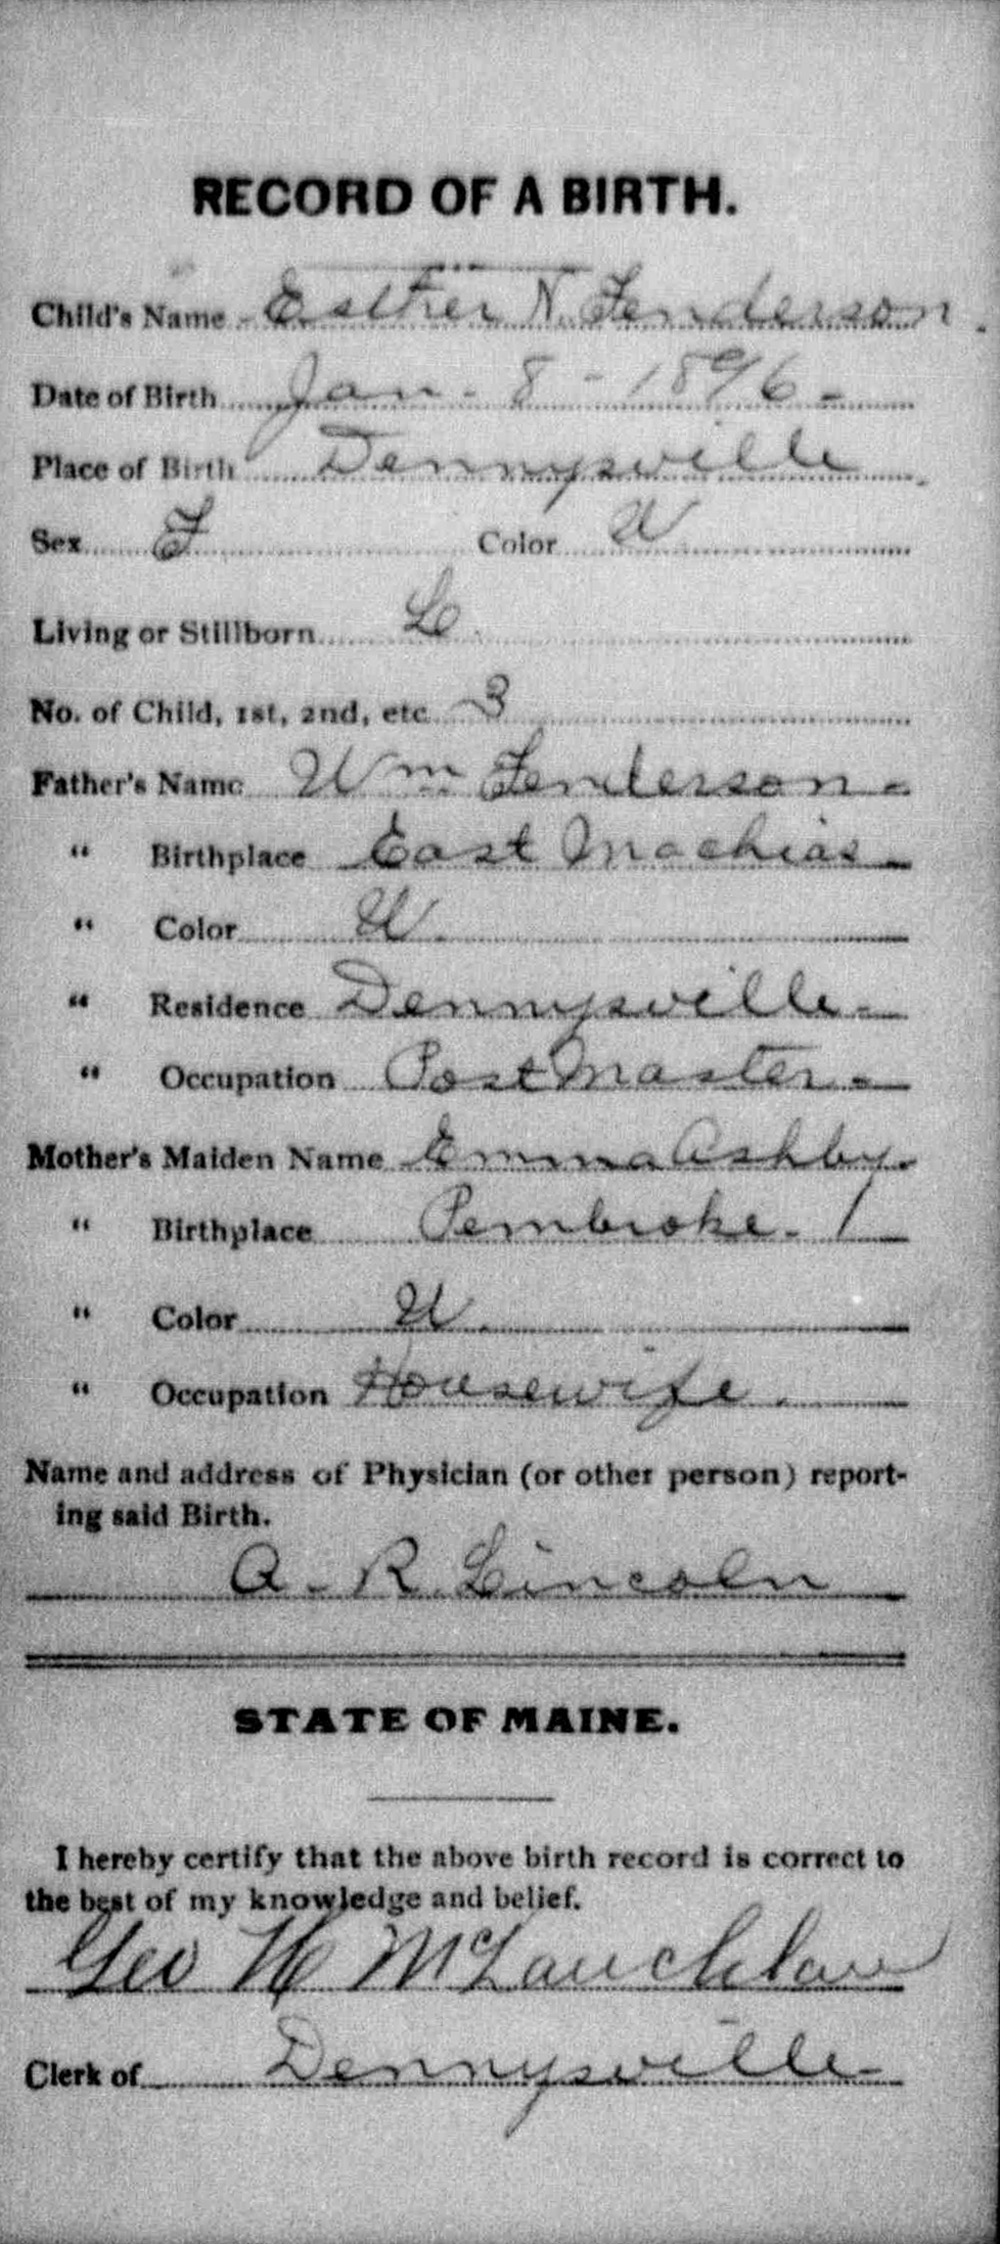 RECORD OF A BIRTH.
Child's Name Esther N. Fenderson.
Date of Birth Jan - 8 - 1896 -
Place of Birth Dennysville
Sex F Color W
Living or Stillborn L
No. of Child, 1st, 2nd, etc 3
Father's Name Wm Fenderson -
" Birthplace East Machias
" Color W
" Residence Dennysville -
" Occupation Post Master -
Mother's Maiden Name Emma Ashby.
" Birthplace Pembroke - /
" Color W
" Occupation Housewife.
Name and address of Physician (or other person) report-
ing said Birth.
A. R. Lincoln
STATE OF MAINE.
I hereby certify that the above birth record is correct to
the best of my knowledge and belief.
Geo H McLauchlan
Clerk of Dennysville